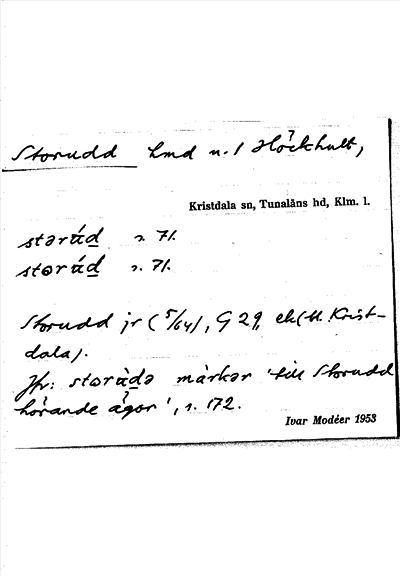 Storudd hmd u. 1 Höckhult,
Kristdala sn, Tunaläns hd, Klm. l.
stərúd s. 71.
storúd s. 71.
Storudd jr (5/64), G 29, ek (M. Krist-
dala).
Jfr: storùdə màrkər 'till Storudd
hörande ägor', s. 172.
Ivar Modéer 1953